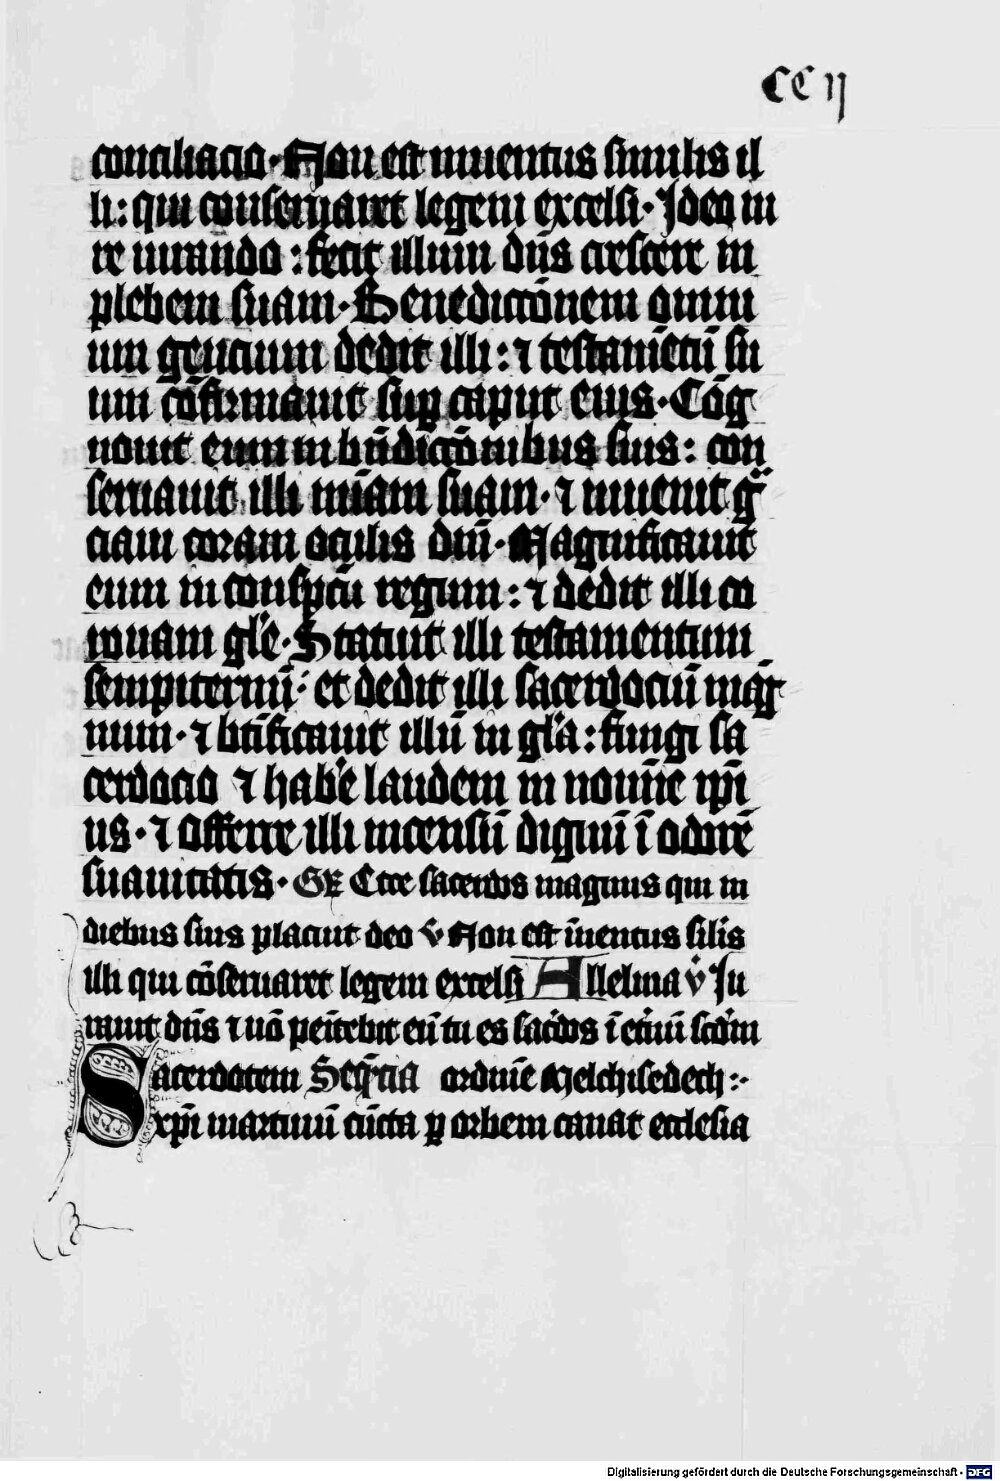 CC ij
conciliacio. Non est inuentus similis il
li: qui conseruaret legem excelsi. Ideo iu
re iurando: fecit illum dn̄s crescere in
plebem suam. Benedictōnem omni
um gencium dedit illi: ⁊ testamētū su
um cōfirmauit suꝑ caput eius. Cōg
nouit eum in bn̄dictōnibus suis: con
seruauit illi mīam suam. ⁊ inuenit gr̄
ciam coram oculis dn̄i. Magnificauit
eum in conspc̄u regum: ⁊ dedit illi co
ronam gl̄e. Statuit illi testamentum
sempiternū: et dedit illi sacerdociū mag
num. ⁊ btīficauit illū in gl̄a: fungi sa
cerdocio ⁊ hab̄e laudem in noīne ip̄i
us. ⁊ offerre illi incensū dignū ī odorē
suauitatis. GR Ecce sacerdos magnus qui in
diebus suis placuit deo v Non est īnentus silīs
illi qui cōseruaret legem excelsi Alleluia v Iu
rauit dn̄s ⁊ nō penītebit eū tu es sac̄dos ī etn̄ū scd̄m
Sacerdotem Seq̄ncia ordinē Melchisedech :·
xp̄i martinū cūcta ꝑ orbem canat ecclesia
Digitalisierung gefördert durch die Deutsche Forschungsgemeinschaft - DFG